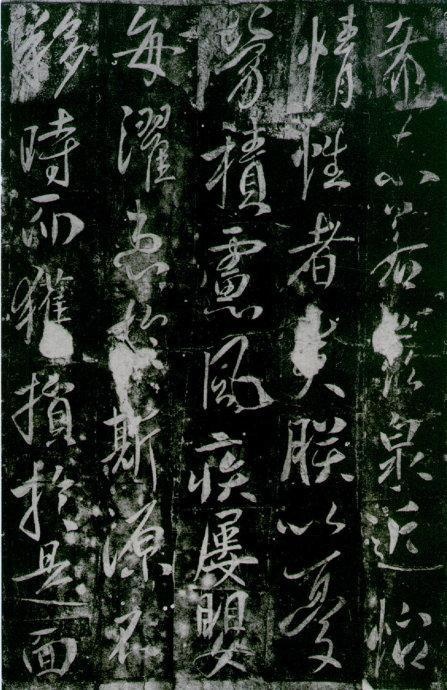 若茲泉近怡
情性者矣朕以憂
勞積慮風疾屢嬰
每濯患於斯源不
移時而獲損於是面